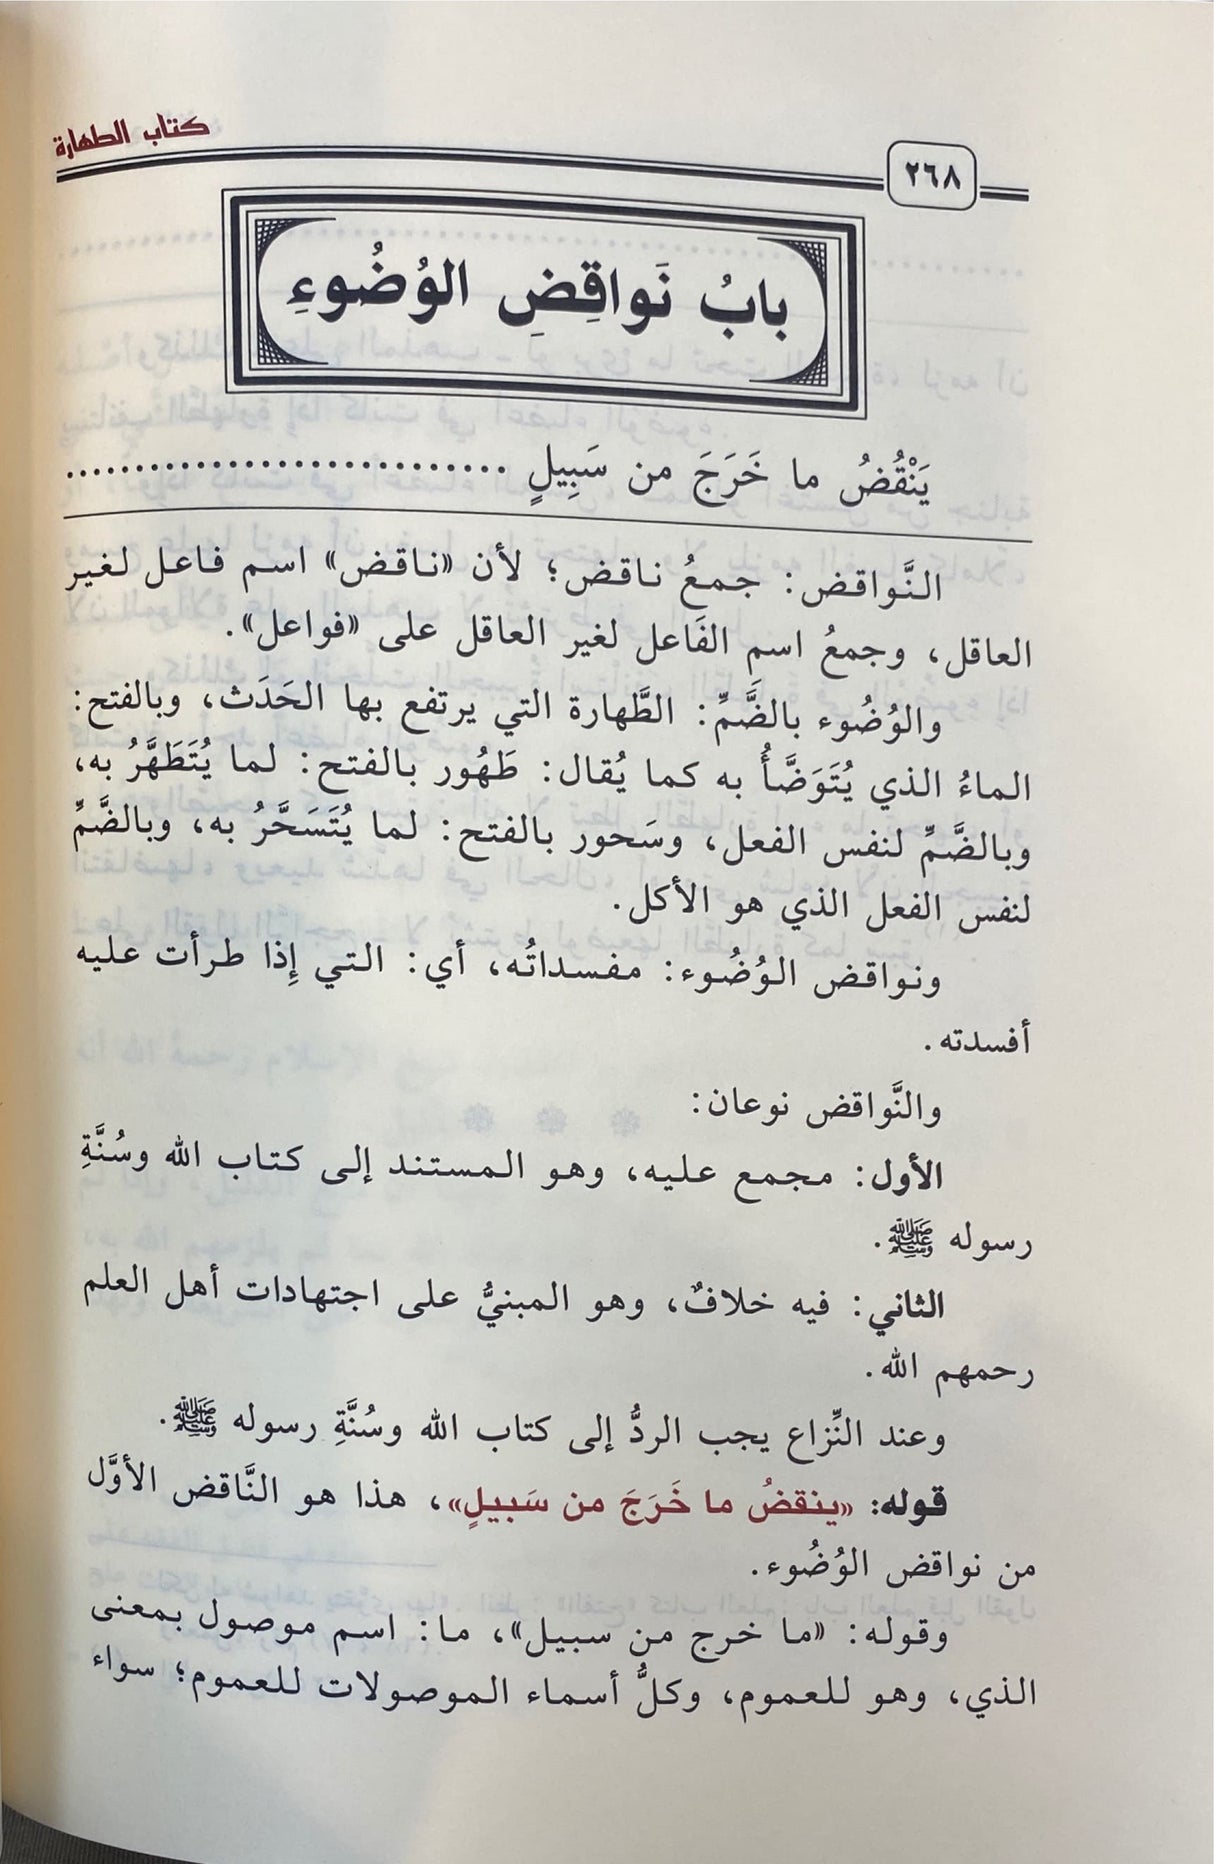 كتاب الطهارة
٢٦٨
بابُ نَواقِضِ الوُضُوءِ
يَنْقُضُ ما خَرَجَ من سَبِيلٍ ................................
النَّواقض: جمعُ ناقض؛ لأن «ناقض» اسم فاعل لغير
العاقل، وجمعُ اسم الفَاعل لغير العاقل على «فواعل».
والوُضُوء بالضَّمِّ: الطَّهارة التي يرتفع بها الحَدَث، وبالفتح:
الماءُ الذي يُتَوَضَّأُ به كما يُقال: طَهُور بالفتح: لما يُتَطَهَّرُ به،
وبالضَّمِّ لنفس الفعل، وسَحور بالفتح: لما يُتَسَحَّرُ به، وبالضَّمِّ
لنفس الفعل الذي هو الأكل.
ونواقض الوُضُوء: مفسداتُه، أي: التي إِذا طرأت عليه
أفسدته.
والنَّواقض نوعان:
الأول: مجمع عليه، وهو المستند إلى كتاب الله وسُنَّةِ
رسوله ﷺ.
الثاني: فيه خلافٌ، وهو المبنيُّ على اجتهادات أهل العلم
رحمهم الله.
وعند النِّزاع يجب الردُّ إلى كتاب الله وسُنَّةِ رسوله ﷺ.
قوله: «ينقضُ ما خَرَجَ من سَبيلٍ»، هذا هو النَّاقض الأوَّل
من نواقض الوُضُوء.
وقوله: «ما خرج من سبيل»، ما: اسم موصول بمعنى
الذي، وهو للعموم، وكلُّ أسماء الموصولات للعموم؛ سواء